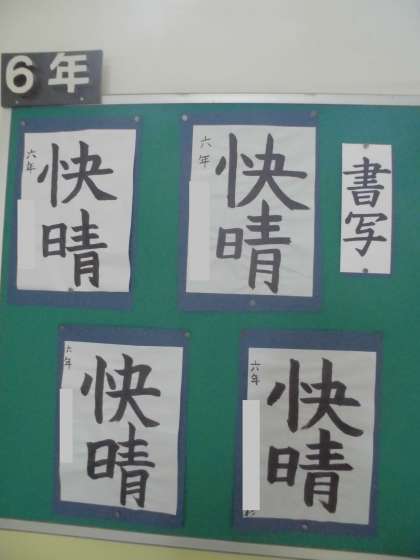 6年
六年
快晴
六年
快晴
書写
六年
快晴
六年
快晴